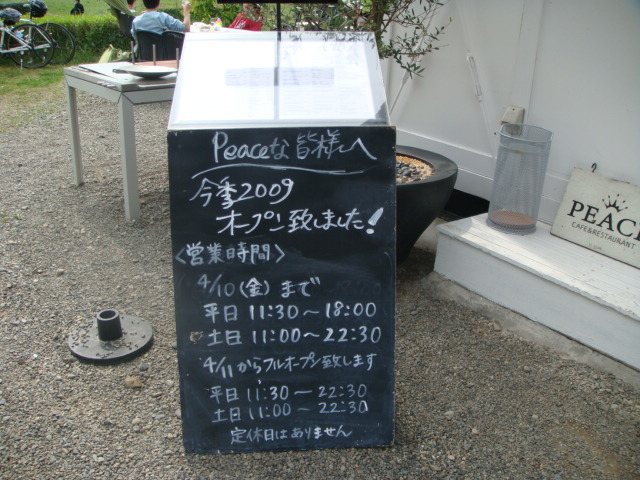 Peaceな皆様へ
今季2009
オープン致しました!
<営業時間>
4/10(金)まで
平日 11:30～18:00
土日 11:00～22:30
4/11からフルオープン致します
平日 11:30～22:30
土日 11:00～22:30
定休日はありません
PEACE
CAFE&RESTAURANT